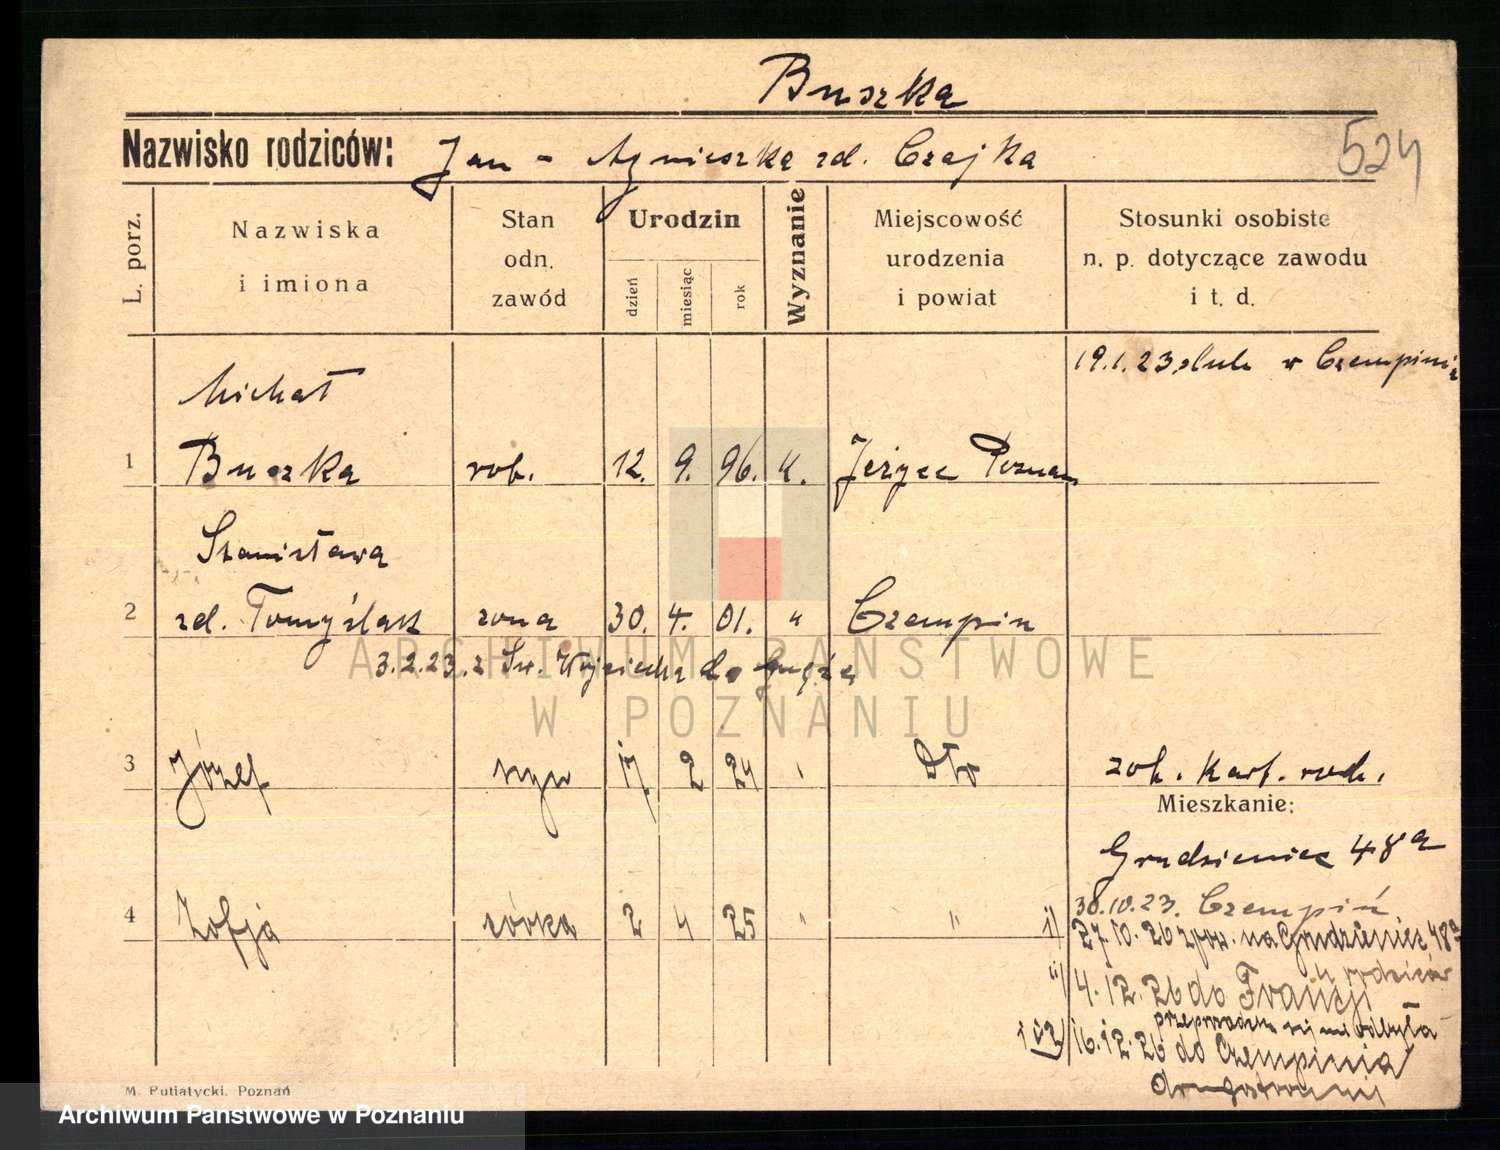 Buszka
Nazwisko rodziców: Jan - Agnieszka zd. Czajka
524
L. porz.
Nazwiska
i imiona
Stan
odn.
zawód
Urodzin
dzień
miesiąc
rok
Wyznanie
Miejscowość
urodzenia
i powiat
Stosunki osobiste
n. p. dotyczące zawodu
i t. d.
19.1.23 ślub w Czempiniu
Michał
1 Buszka rob. 12. 9. 96. k. Jeżyce Poznań
Stanisława
2 zd. Tomyślak żona 30. 4. 01. " Czempiń
3.2.23. z Św. Wojciecha do
3 Józef syn 17 2 24 " Dto zob. kart. rodz.
Mieszkanie:
Grudzieniec 48a
30.10.23. Czempiń
4 Zofja córka 2 4 25 " "
1/ 27 10. 26 z poz. na Grudzieniec 48a
u rodziców
"/ 4. 12. 26 do Francji
przeprowadzka się nie odbyła
1 i 2/ 16. 12. 26 do Czempinia
ARCHIWUM PAŃSTWOWE
W POZNANIU
M. Putiatycki, Poznań
Archiwum Państwowe w Poznaniu